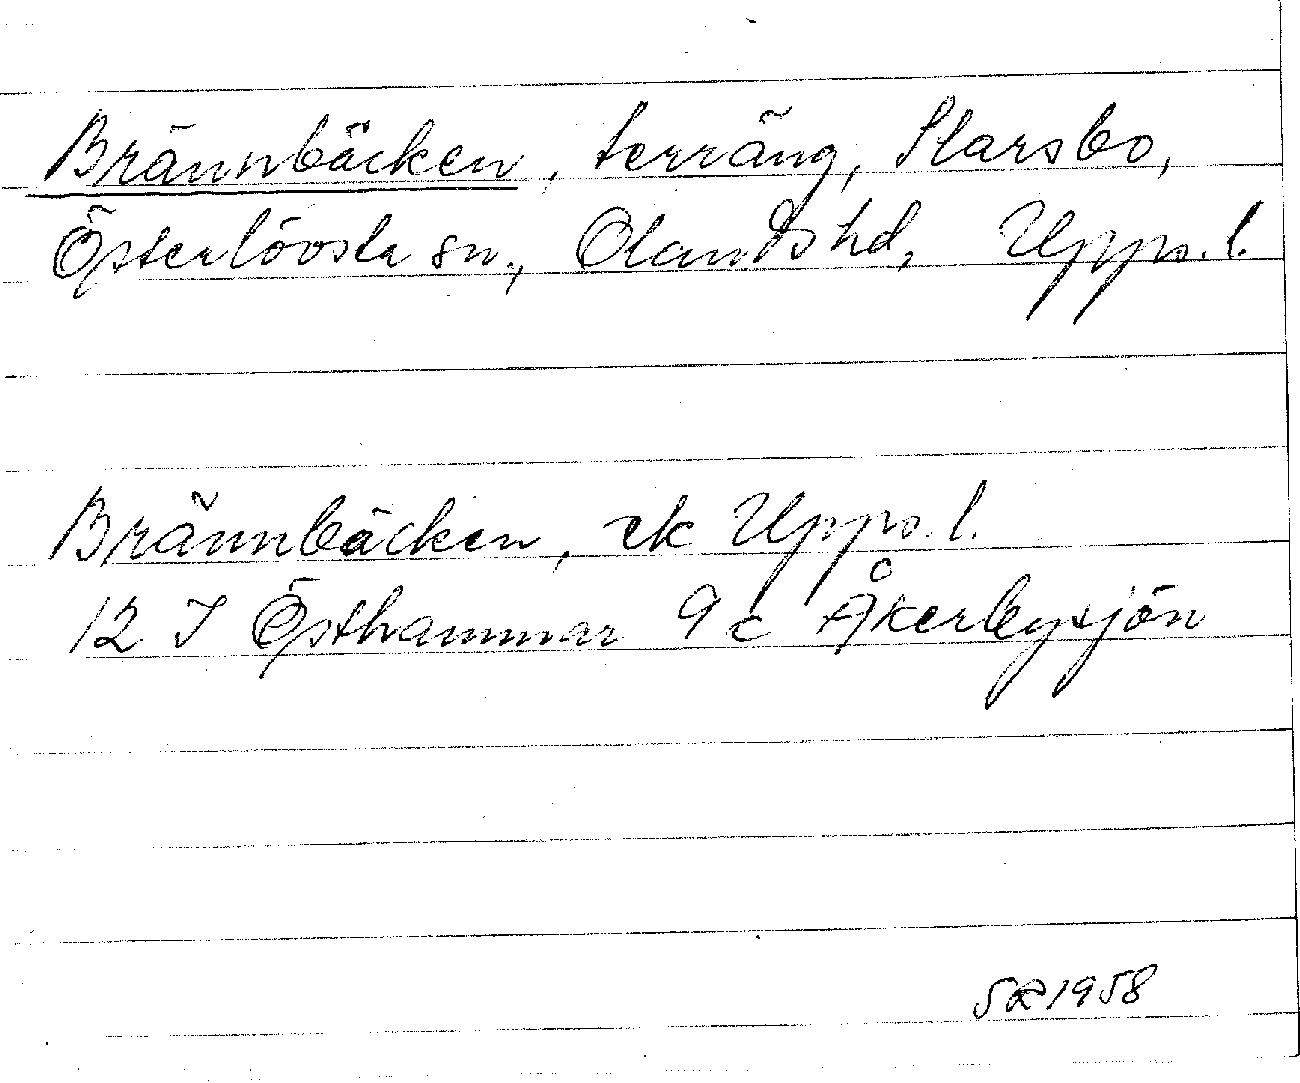 Brännbäcken, terräng, Slarsbo,
Österlövsta sn., Olands hd, Upps. l.
Brännbäcken, ek Upps. l.
12 I Östhammar 9 c Åkerbysjön
SR 1958